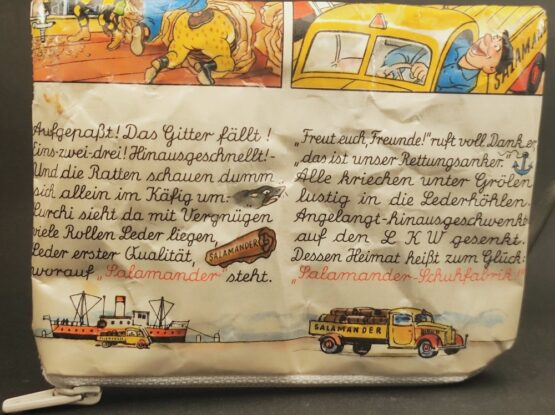 SALAMANDER
Aufgepaßt! Das Gitter fällt!
Eins-zwei-drei! Hinausgeschnellt!-
Und die Ratten schauen dumm
sich allein im Käfig um.
Lurchi sieht da mit Vergnügen
viele Rollen Leder liegen,
Leder erster Qualität,
worauf „Salamander" steht.
SALAMANDER
„Freut euch, Freunde!" ruft voll Dank er,
„das ist unser Rettungsanker.
Alle kriechen unter Grölen
lustig in die Lederhöhlen.
Angelangt-hinausgeschwenkt
auf den LKW gesenkt.
Dessen Heimat heißt zum Glück:
„Salamander-Schuhfabrik!"
SALAMANDER